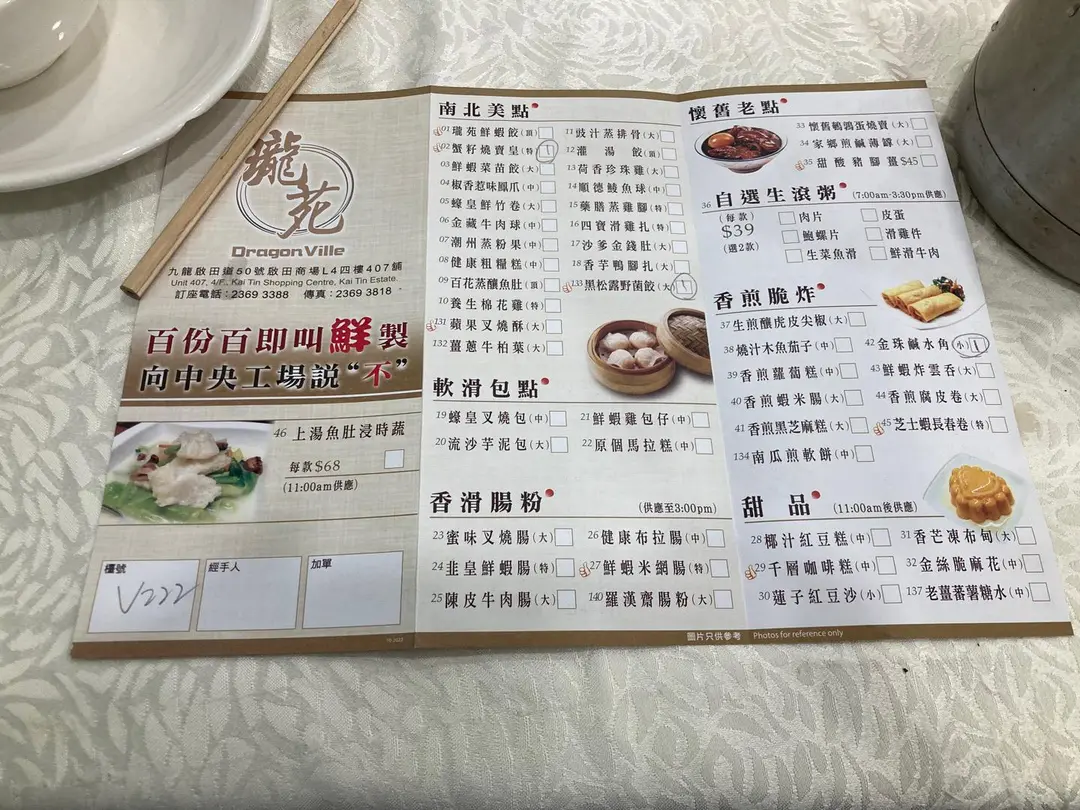 瓏苑
DragonVille
九龍啟田道50號啟田商場L4四樓407舖
Unit 407, 4/F., Kai Tin Shopping Centre, Kai Tin Estate.
訂座電話：2369 3388 傳真：2369 3818
百份百即叫鮮製
向中央工場説“不”
46 上湯魚肚浸時蔬
每款$68
(11:00am供應)
檯號
V222
經手人
加單
南北美點
01 瓏苑鮮蝦餃(頂)
02 蟹籽燒賣皇(特) 1
03 鮮蝦菜苗餃(大)
04 椒香惹味鳳爪(中)
05 蠔皇鮮竹卷(大)
06 金藏牛肉球(中)
07 潮州蒸粉果(中)
08 健康粗糧糕(中)
09 百花蒸釀魚肚(頂)
10 養生棉花雞(特)
131 蘋果叉燒酥(大)
132 薑蔥牛柏葉(大)
11 豉汁蒸排骨(大)
12 灌湯餃(頂)
13 荷香珍珠雞(大)
14 順德鯪魚球(中)
15 藥膳蒸雞腳(特)
16 四寶滑雞扎(特)
17 沙爹金錢肚(大)
18 香芋鴨腳扎(大)
133 黑松露野菌餃(大) 1
軟滑包點
19 蠔皇叉燒包(中)
20 流沙芋泥包(大)
21 鮮蝦雞包仔(中)
22 原個馬拉糕(中)
香滑腸粉
(供應至3:00pm)
23 蜜味叉燒腸(大)
24 韭皇鮮蝦腸(特)
25 陳皮牛肉腸(大)
26 健康布拉腸(中)
27 鮮蝦米網腸(特)
140 羅漢齋腸粉(大)
圖片只供參考 Photos for reference only
懷舊老點
33 懷舊鵪鶉蛋燒賣(大)
34 家鄉煎鹹薄罉(大)
35 甜酸豬腳薑$45
36 自選生滾粥 (7:00am-3:30pm供應)
(每款)
$39
(選2款)
肉片
皮蛋
鮑螺片
滑雞件
生菜魚滑
鮮滑牛肉
香煎脆炸
37 生煎釀虎皮尖椒(大)
38 燒汁木魚茄子(中)
39 香煎蘿蔔糕(中)
40 香煎蝦米腸(大)
41 香煎黑芝麻糕(大)
134 南瓜煎軟餅(中)
42 金珠鹹水角(小) 1
43 鮮蝦炸雲吞(大)
44 香煎腐皮卷(大)
45 芝士蝦長春卷(特)
甜品 (11:00am後供應)
28 椰汁紅豆糕(中)
29 千層咖啡糕(中)
30 蓮子紅豆沙(小)
31 香芒凍布甸(大)
32 金絲脆麻花(中)
137 老薑蕃薯糖水(中)